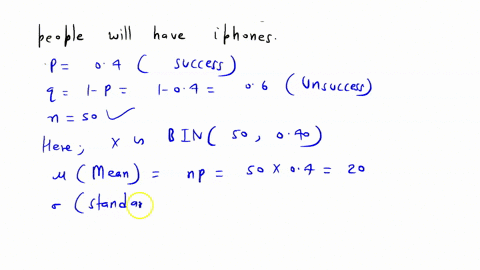 people will have iphones.
p = 0.4 ( success)
q = 1-p = 1-0.4 = 0.6 (Unsuccess)
n = 50 ✓
Here; X ~ BIN( 50, 0.40)
μ (Mean) = np = 50 × 0.4 = 20
σ (standar